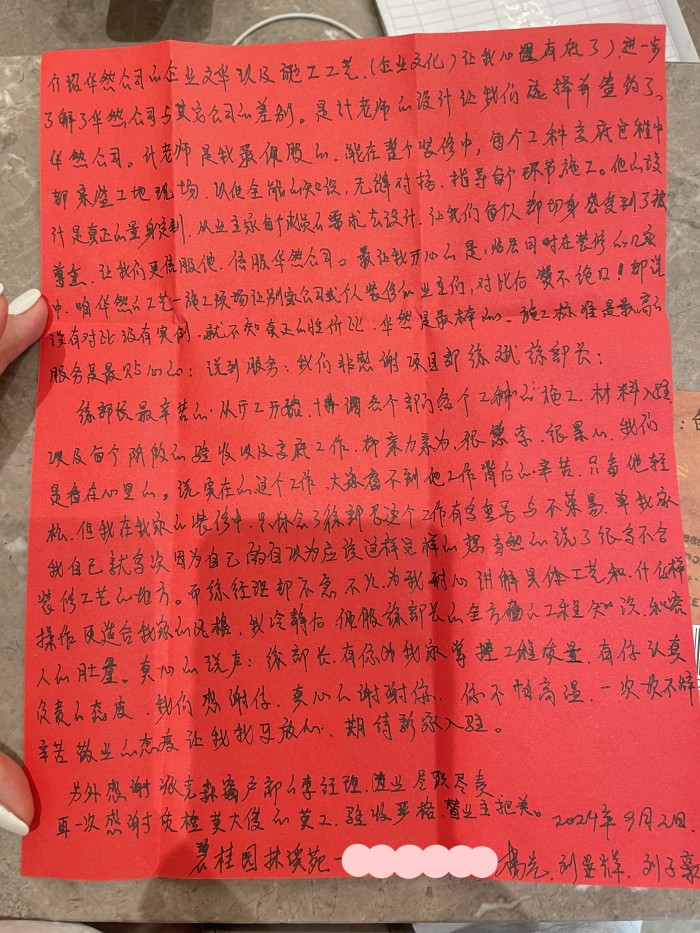 介绍华然公司的企业文华以及施工工艺.(企业文化)让我心里有底了),进一步
了解了华然公司与其它公司的差别。是计老师的设计让我们选择并签约了
华然公司。计老师是我最佩服的,能在整个装修中,每个工种交底过程中
都亲临工地现场,以他全能的知识,无缝对接,指导每个环节施工。他的设
计是真正的量身定制,从业主家每个成员的需求去设计,让我们每个人都切身感受到了被
尊重,让我们更信服他,信服华然公司。最让我开心的是,临居同时在装修的几家
中,咱华然的工艺、施工现场让别家公司或个人装修的业主们,对比后赞不绝口!都说
没有对比没有实例,就不知真正的性价比,华然是最棒的。施工标准是最高的
服务是最贴心的:说到服务:我们非感谢项目部徐斌徐部长:
徐部长最辛苦的,从开工开始,协调各个部门各个工种的施工,材料入验
以及每个阶段的验收以及交底工作,都亲力亲为,很懃 很累的,我们
是看在心里的。说实在的这个工作,大家看不到他工作背后的辛苦,只看他轻
松,但我在我家的装修中,只体会了徐部长这个工作有多重要与不荣易,单我家
我自己就多次因为自己的自以为应该这样是样的想当然的说了很多不合
装修工艺的地方。而徐经理却不急不火,为我耐心讲解具体工艺和,什么样
操作更适合我家的风格,我冷静后佩服徐部长的全方福的工程知识,和容
人的肚量。真心的说声:徐部长,有你的我家掌握工程质量,有你认真
负责的态度,我们感谢你,真心的谢谢你. 你不怕高温,一次次不辞
辛苦敬业的态度让我我更放心,期待新家入驻。
另外感谢派克森窗户部的李经理,敬业尽职尽责,
再一次感谢质检黄大俊的黄工,验收严格,替业主把关。2024年9月2日
碧桂园扶溪苑一 杨 ,刘显辉,刘子豪